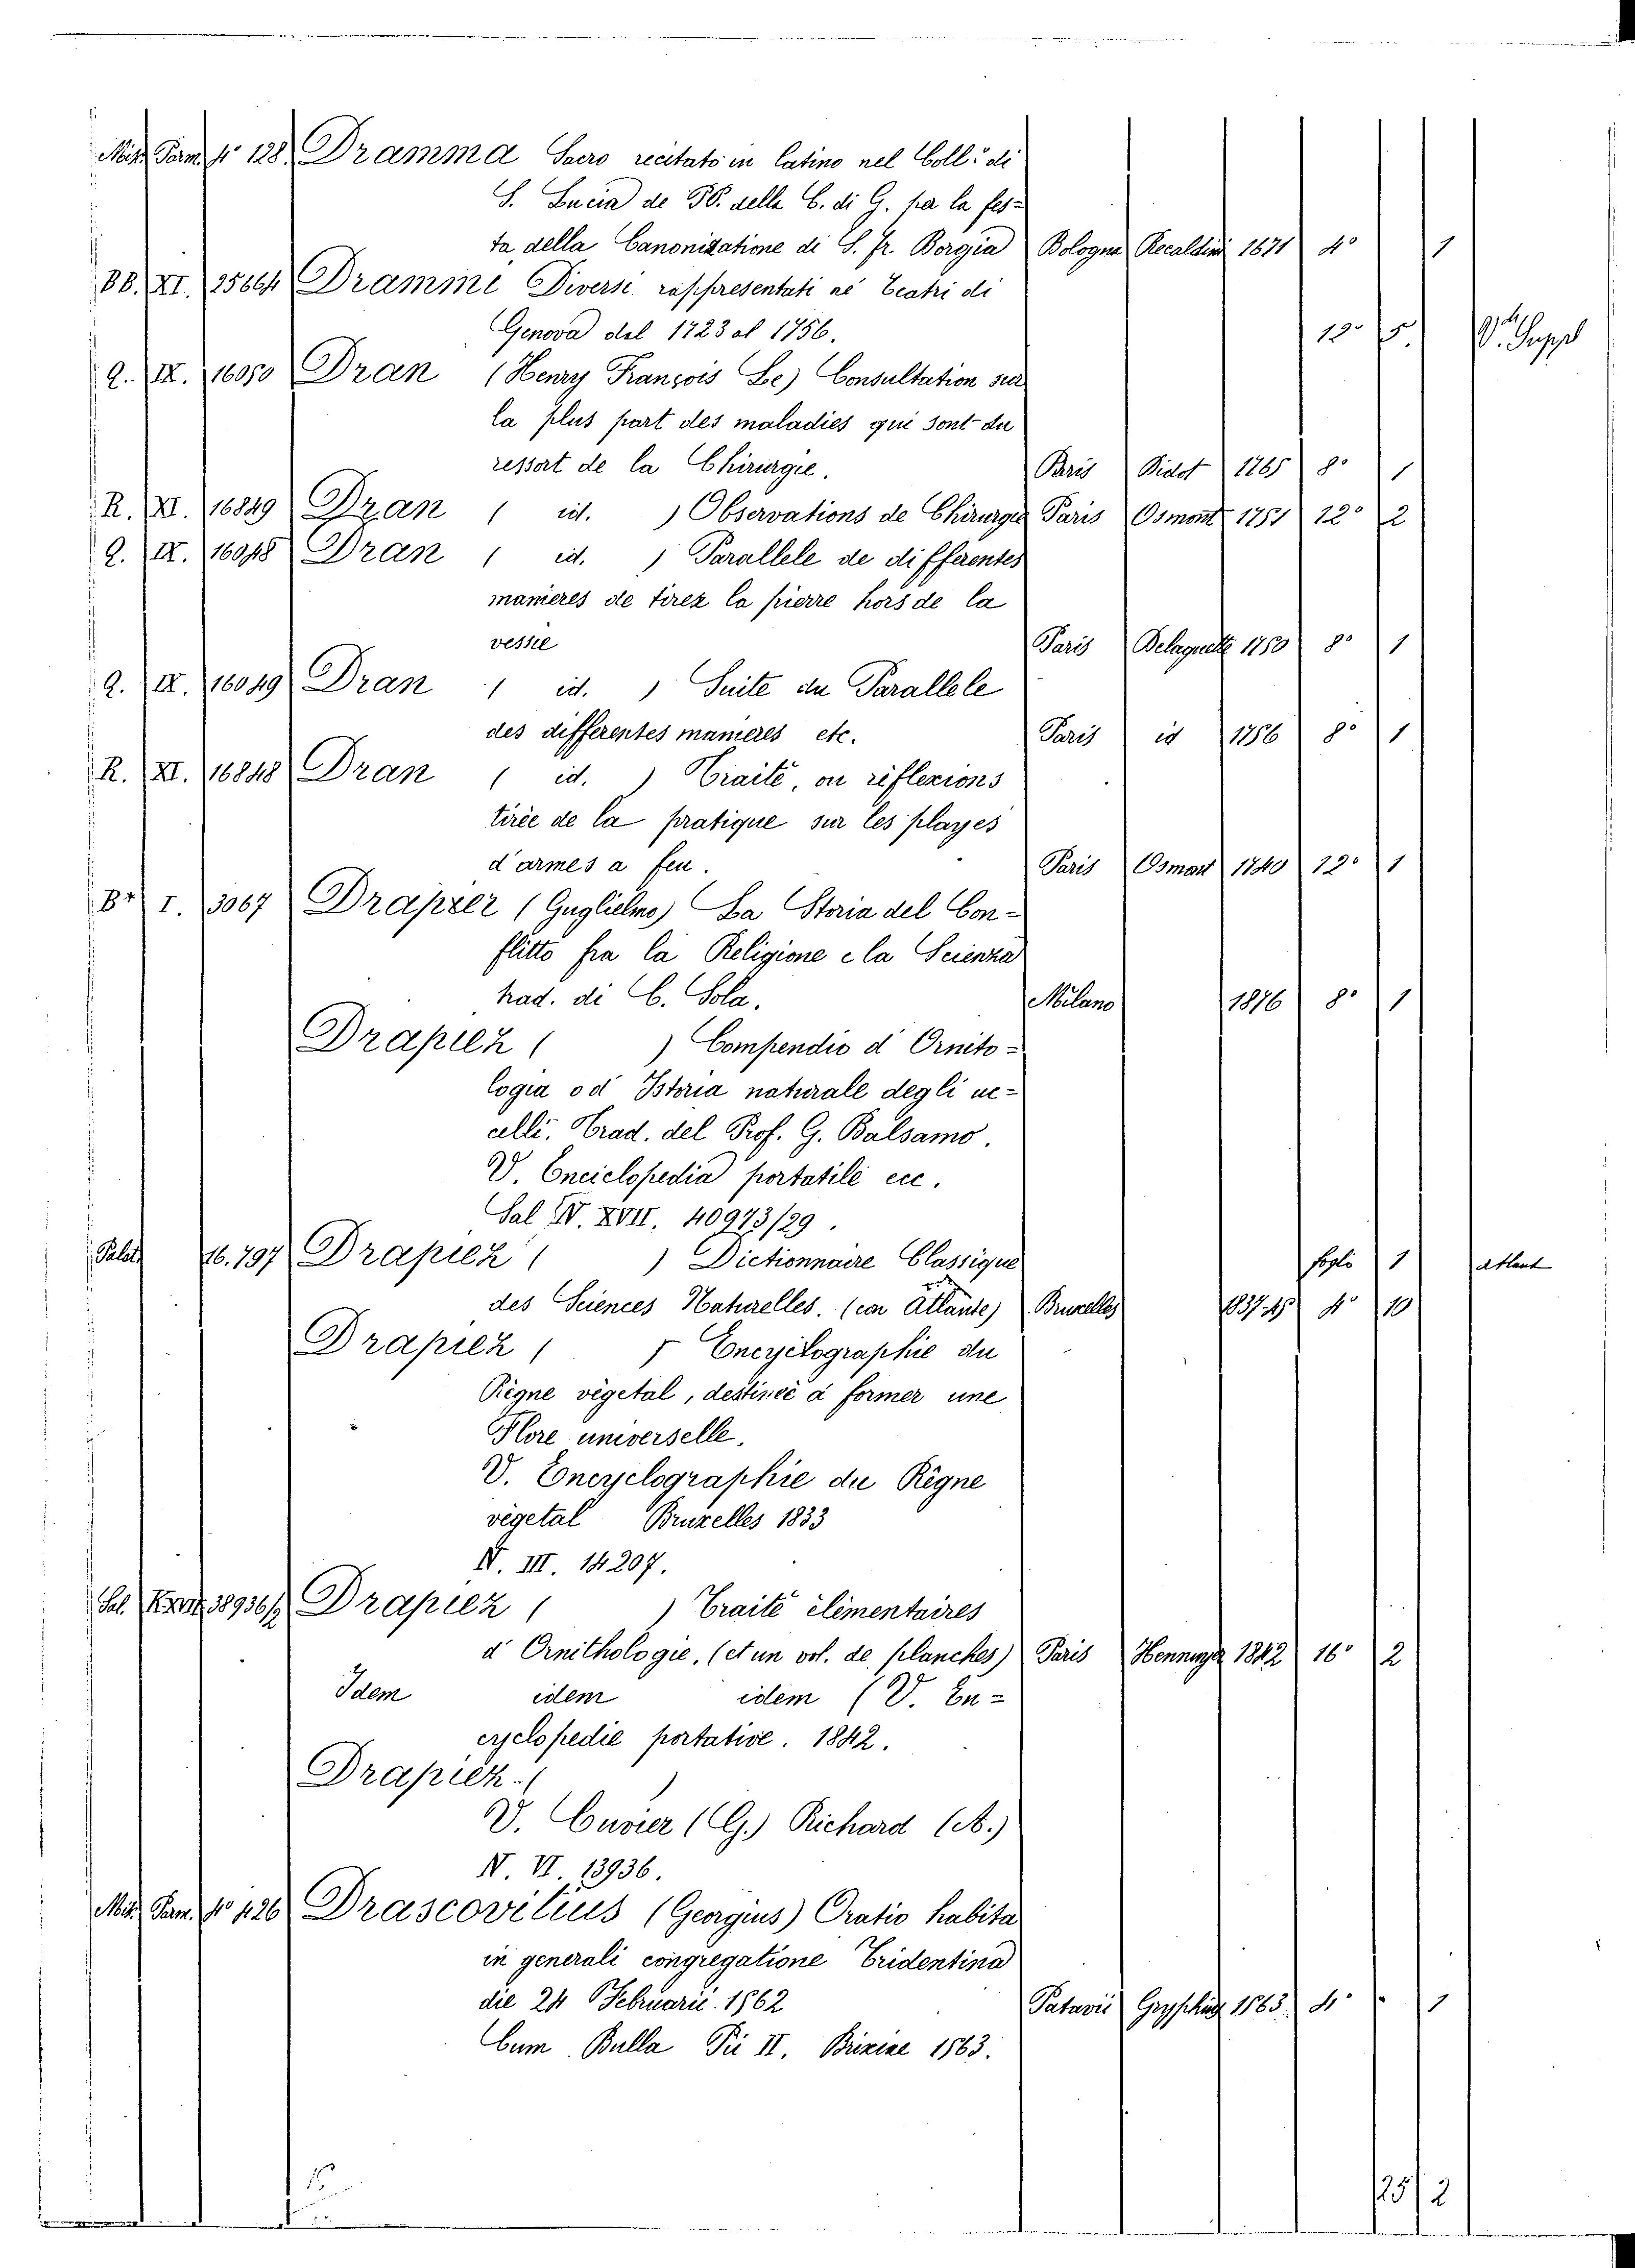 Misc. Parm. fo 128. Dramma Sacro recitato in latino nel Coll.o di
S. Lucia de PP. della C. di G. per la fes=
ta della Canonizatione di S. Fr. Borgia Bologna Recaldini 1671 4o 1
BB. XI. 25664 Drammi Diversi rappresentati ne' Teatri di
Genova dal 1723 al 1756. 12o 5. V. Suppl
Q. IX. 16050 Dran (Henry François Le) Consultation sur
la plus part des maladies qui sont du
ressort de la Chirurgie. Paris Didot 1765 8o 1
R. XI. 16849 Dran ( id. ) Observations de Chirurgie Paris Osmont 1751 12o 2
Q. IX. 16048 Dran ( id. ) Parallele de differentes
manieres de tirez la pierre hors de la
vessie Paris Delaguette 1750 8o 1
Q. IX. 16049 Dran ( id. ) Suite du Parallele
des differentes manieres etc. Paris id 1756 8o 1
R. XI. 16848 Dran ( id. ) Traité, ou réflexions
tirée de la pratique sur les playes
d'armes a feu. Paris Osmont 1740 12o 1
Br I. 3067 Draper (Guglielmo) La Storia del Con=
flitto fra la Religione e la Scienza
trad. di C. Sola. Milano 1876 8o 1
Drapiez ( ) Compendio d' Ornito=
logia od Istoria naturale degli uc=
celli. Trad. del Prof. G. Balsamo.
V. Enciclopedia portatile ecc.
Sal IV. XVII. 40973/29.
Palat. 16.797 Drapiez ( ) Dictionnaire Classique foglo 1 atlant
des Sciences Naturelles. (con Atlante) Bruxelles 1837-45 4o 10
Drapiez ( ) Encyclographie du
Règne végetal, destineé à former une
Flore universelle.
V. Encyclographie du Règne
végetal Bruxelles 1833
N. III. 14207.
Sal. 38936/2 Drapiez ( ) Traité élémentaires
d' Ornithologie, (et un vol. de planches) Paris Henninger 1842 16o 2
Idem idem idem (V. En=
cyclopedie portative. 1842.
Drapiez. ( )
V. Cuvier (G.) Richard (A.)
N. VI. 13936.
Misc. Parm. fo 426 Drascovitius (Georgius) Oratio habita
in generali congregatione Tridentina
die 24 Februarii 1562 Patavii 1563 4o 1
Cum Bulla Pii II. Brixiae 1563.
25/2